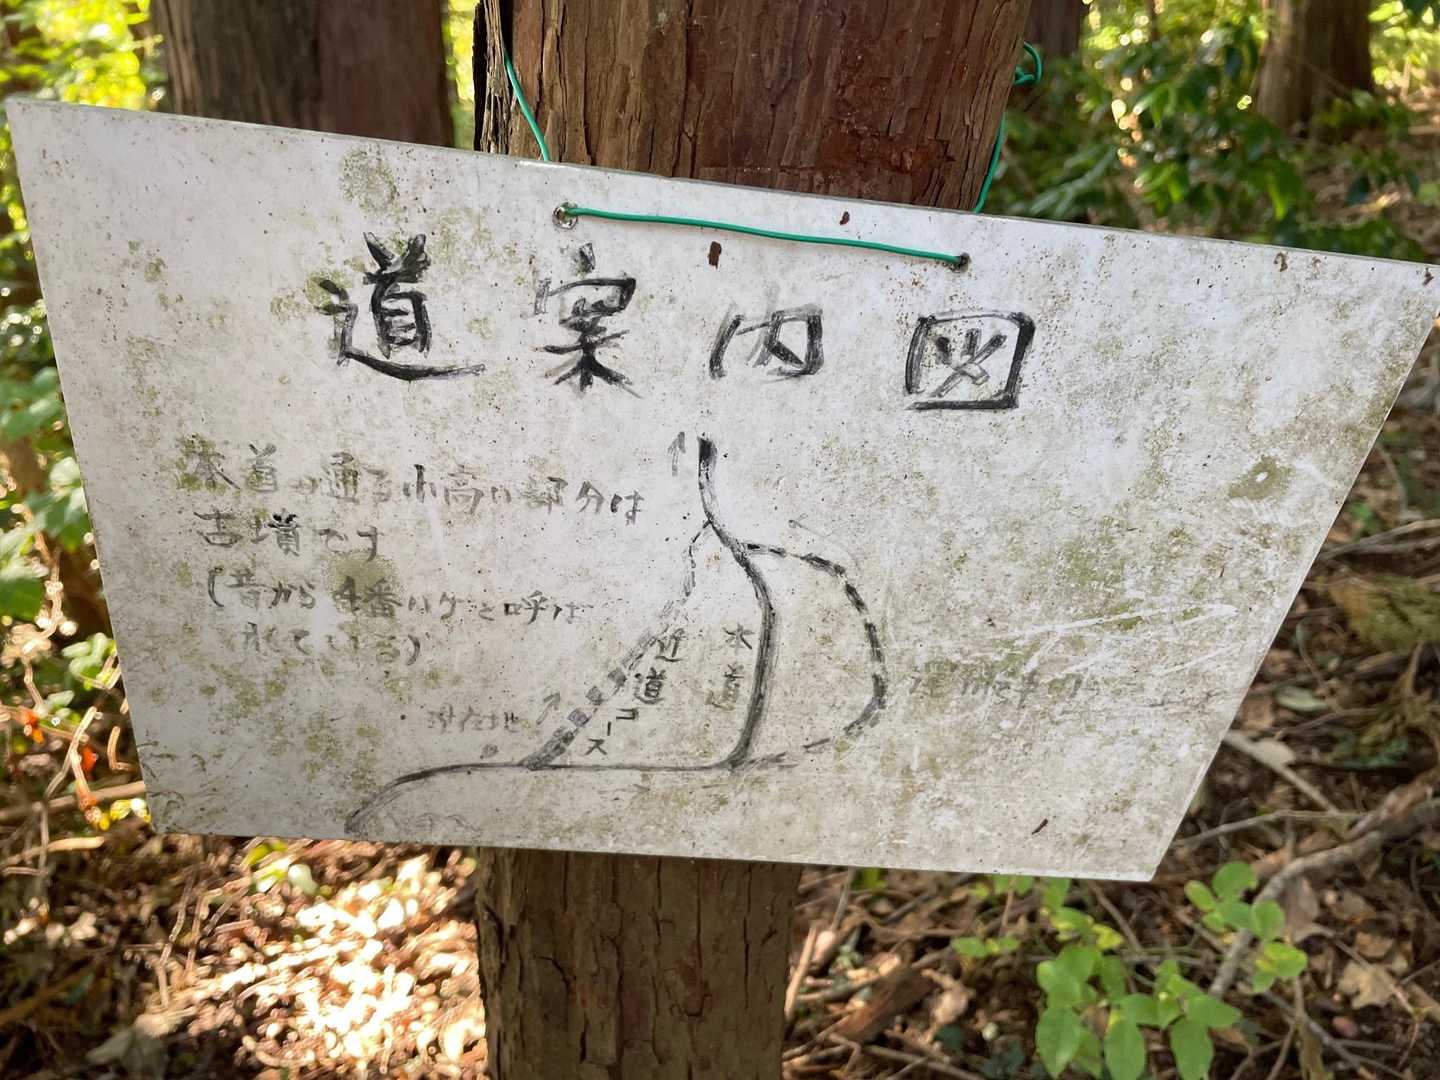 道案内図
本道の通る小高い部分は
古墳です
(昔から4番ハゲと呼ば
れている)
近道コース
本道
現在地